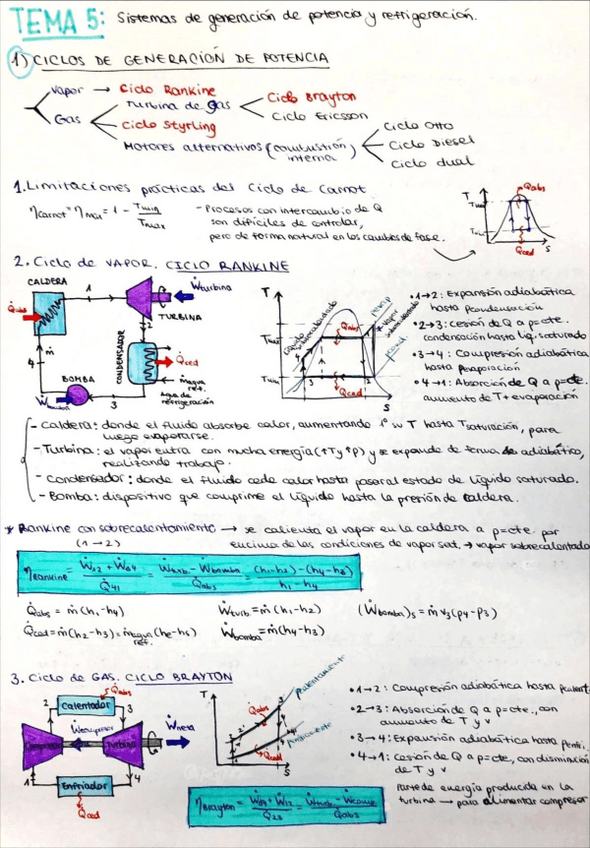 TEMA 5: Sistemas de generación de potencia y refrigeración.
1) CICLOS DE GENERACIÓN DE POTENCIA
Vapor → Ciclo Rankine
Gas
Turbina de gas
Ciclo Brayton
Ciclo Ericsson
Ciclo Styrling
Motores alternativos (combustión interna)
Ciclo Otto
Ciclo Diesel
Ciclo dual
1. Limitaciones prácticas del Ciclo de Carnot
ηcarnot = ηmax = 1 - Tmin/Tmax
- Procesos con intercambio de Q
son difíciles de controlar,
pero de forma natural en los cambios de fase.
T
Qabs
Qced
S
2. Ciclo de VAPOR. CICLO RANKINE
CALDERA
1
Ẇturbina
TURBINA
Q̇abs
2
CONDENSADOR
Q̇ced
4
ṁ
BOMBA
3
ṁagua ref.
Agua de refrigeración
T
Tmax
Tmin
Qabs
Qced
S
• 1→2: Expansión adiabática
hasta pcondensación
• 2→3: Cesión de Q a p=cte.
condensación hasta líq. saturado
• 3→4: Compresión adiabática
hasta pevaporación
• 4→1: Absorción de Q a p=cte.
aumento de T + evaporación
- Caldera: donde el fluido absorbe calor, aumentando 1º su T hasta Tsaturación, para
luego evaporarse.
- Turbina: el vapor entra con mucha energía (↑T y ↑p) y se expande de forma adiabática,
realizando trabajo.
- Condensador: donde el fluido cede calor hasta pasar al estado de líquido saturado.
- Bomba: dispositivo que comprime el líquido hasta la presión de caldera.
* Rankine con sobrecalentamiento → se calienta el vapor en la caldera a p=cte. por
(1→2) encima de las condiciones de vapor sat. → vapor sobrecalentado
ηRankine = (Ẇ12 + Ẇ34)/Q̇41 = (Ẇturb. - Ẇbomba)/Q̇abs = ((h1-h2) - (h4-h3))/(h1-h4)
Q̇abs = ṁ(h1-h4) Ẇturb = ṁ(h1-h2) (Ẇbomba)s = ṁv3(p4-p3)
Q̇ced = ṁ(h2-h3) = ṁagua ref.(he-hs) Ẇbomba = ṁ(h4-h3)
3. Ciclo de GAS. CICLO BRAYTON
Q̇abs
2
Calentador
3
Compresor
Turbina
Ẇneta
1
Enfriador
4
Q̇ced
T
Qabs
Qced
S
• 1→2: Compresión adiabática hasta
• 2→3: Absorción de Q a p=cte., con
aumento de T y v
• 3→4: Expansión adiabática hasta
• 4→1: Cesión de Q a p=cte, con disminución
de T y v
Parte de energía producida en la
turbina → para alimentar compresor
ηBrayton = (Ẇ34 + Ẇ12)/Q̇23